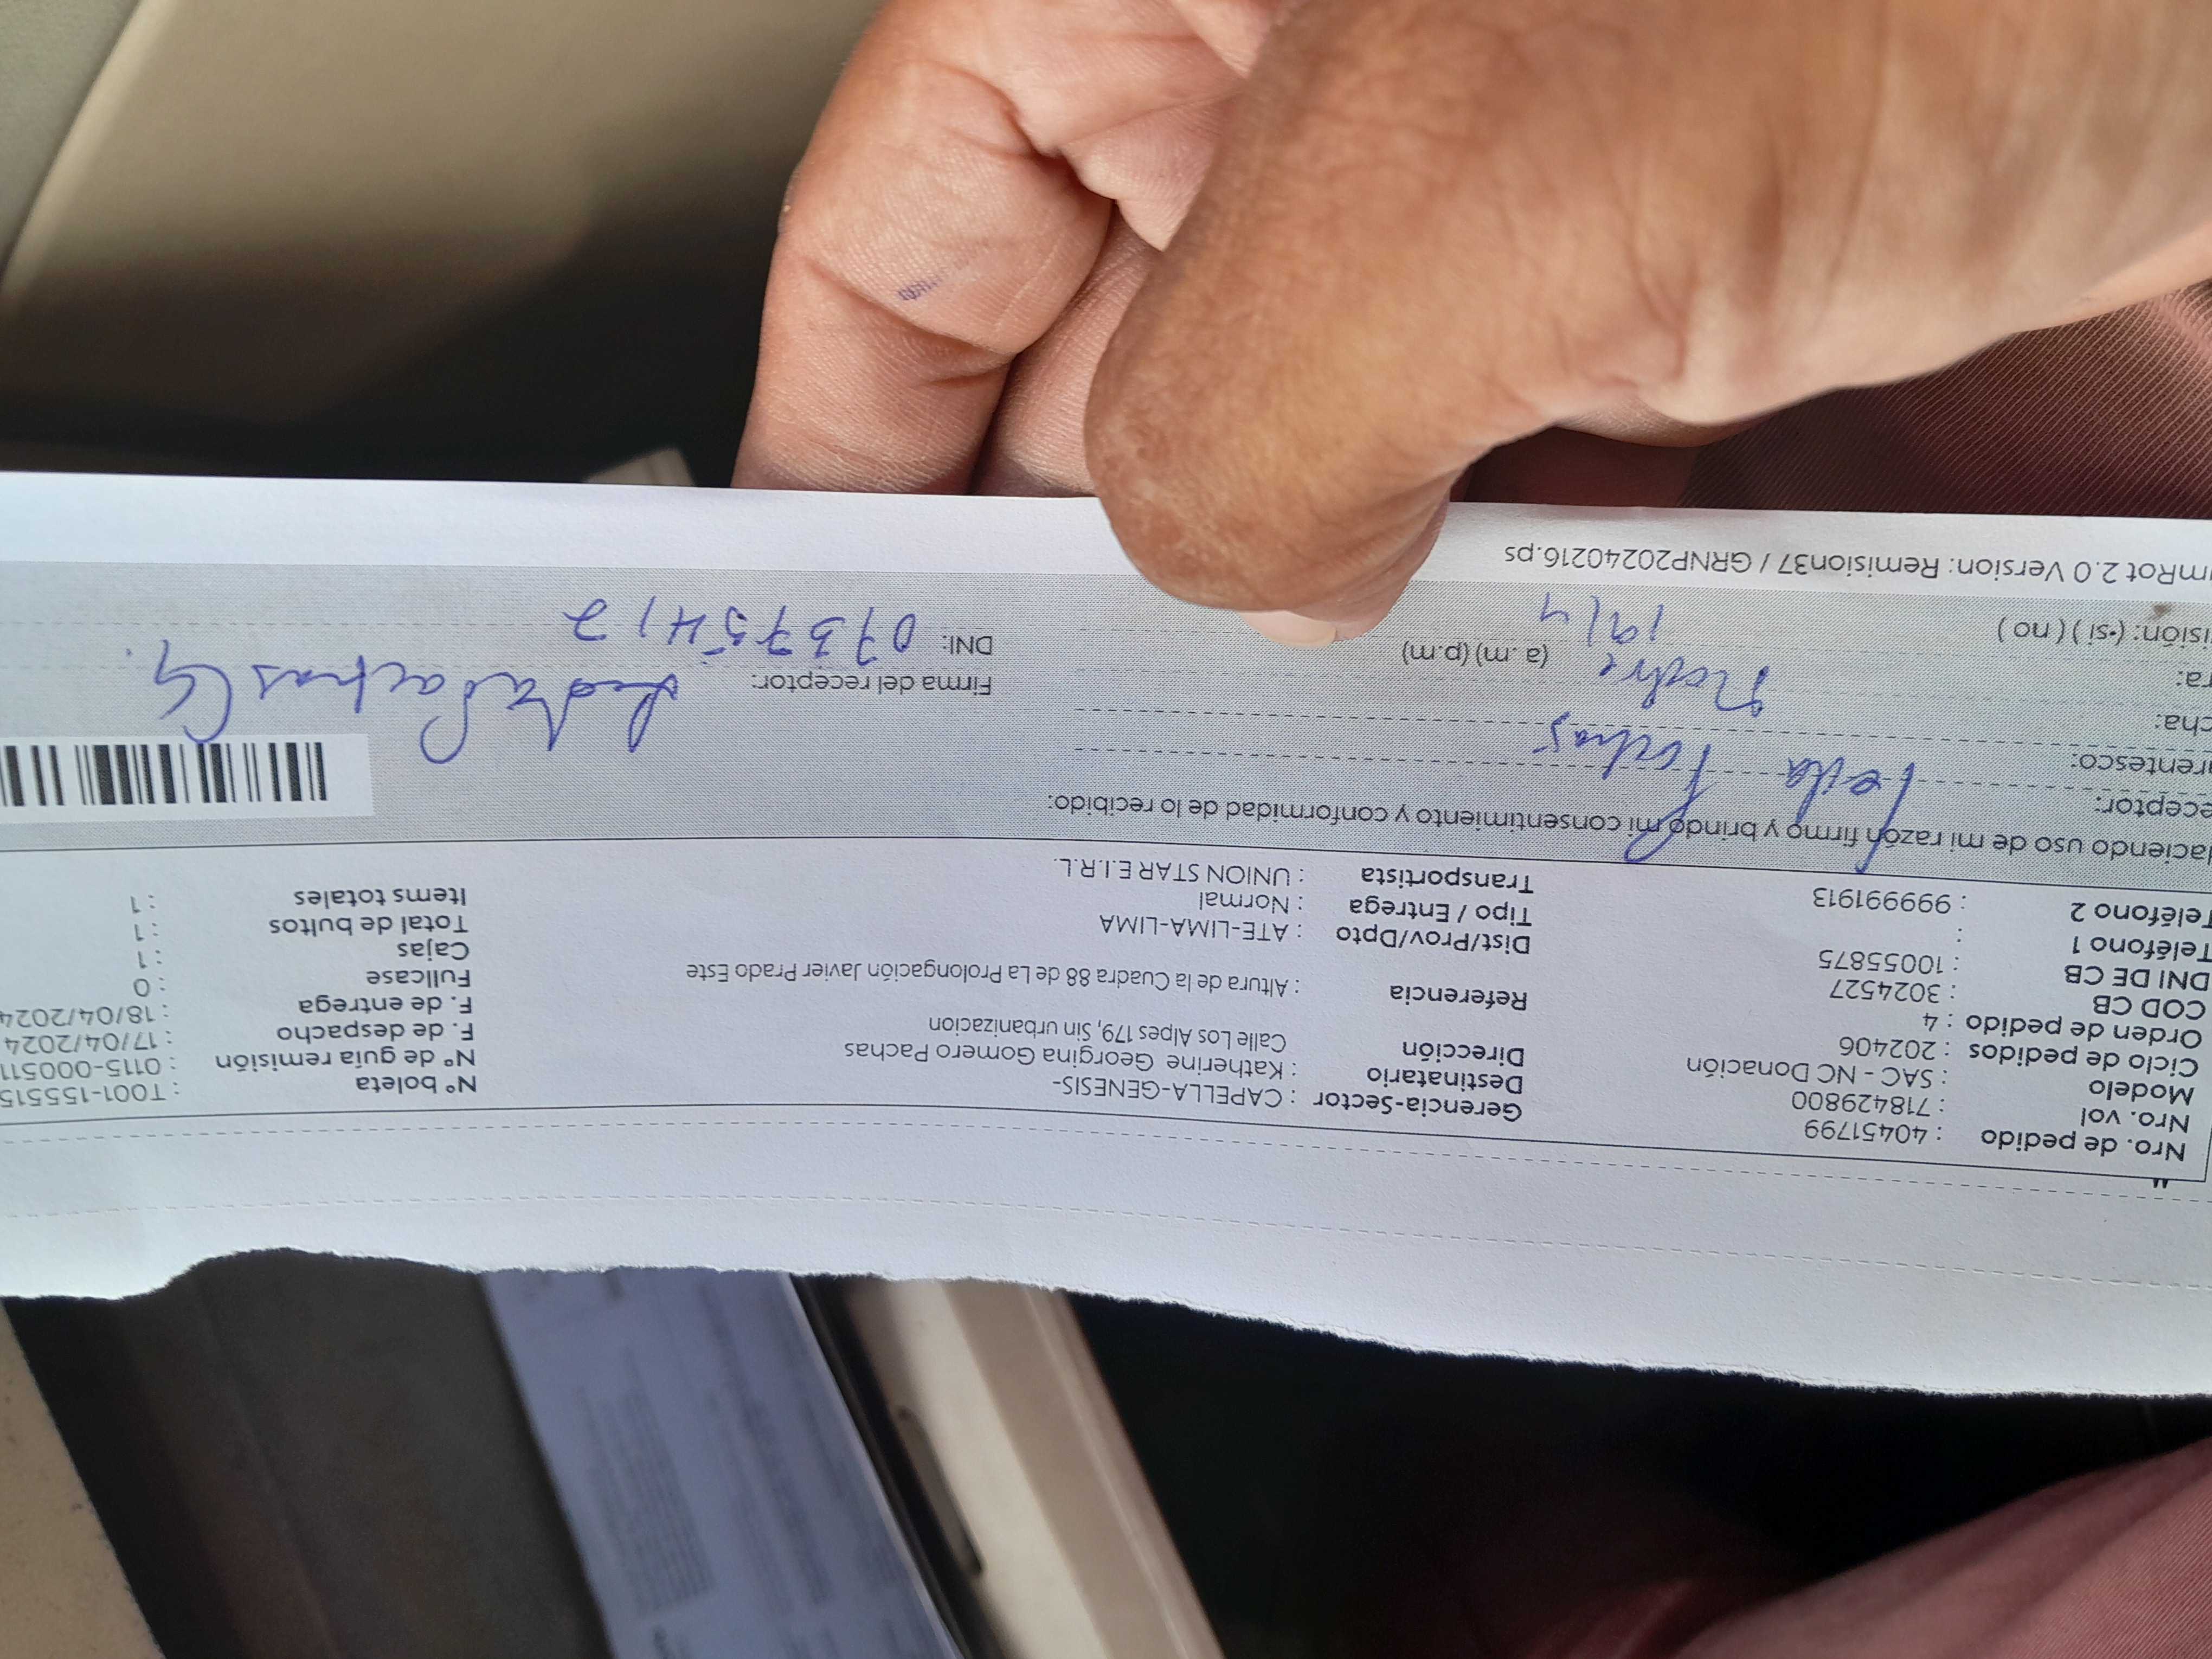 Nro. de pedido : 40451799 Gerencia-Sector : CAPELLA-GENESIS- N° boleta : T001-155515
Nro. vol : 718429800 Destinatario : Katherine Georgina Gomero Pachas N° de guía remisión : 0115-000511
Modelo : SAC - NC Donación Dirección Calle Los Alpes 179, Sin urbanizacion F. de despacho : 17/04/2024
Ciclo de pedidos : 202406 F. de entrega : 18/04/2024
Orden de pedido : 4 Referencia : Altura de la Cuadra 88 de La Prolongación Javier Prado Este Fullcase : 0
COD CB : 3024527 Cajas : 1
DNI DE CB : 10055875 Dist/Prov/Dpto : ATE-LIMA-LIMA Total de bultos : 1
Teléfono 1 : Tipo / Entrega : Normal Items totales : 1
Teléfono 2 : 999991913 Transportista : UNION STAR E.I.R.L.
Haciendo uso de mi razón firmo y brindo mi consentimiento y conformidad de lo recibido:
eceptor: Leyla Pachas
rentesco: Madre
cha: 19/4 Firma del receptor:
ra: (a.m) (p.m) DNI: 07375412
isión: (si) (no)
mRot 2.0 Version: Remision37 / GRNP20240216.ps